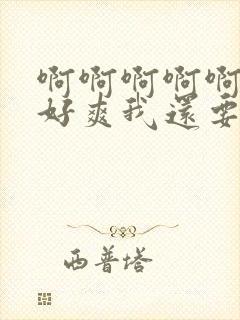 啊啊啊啊啊
好爽我還要
西普塔